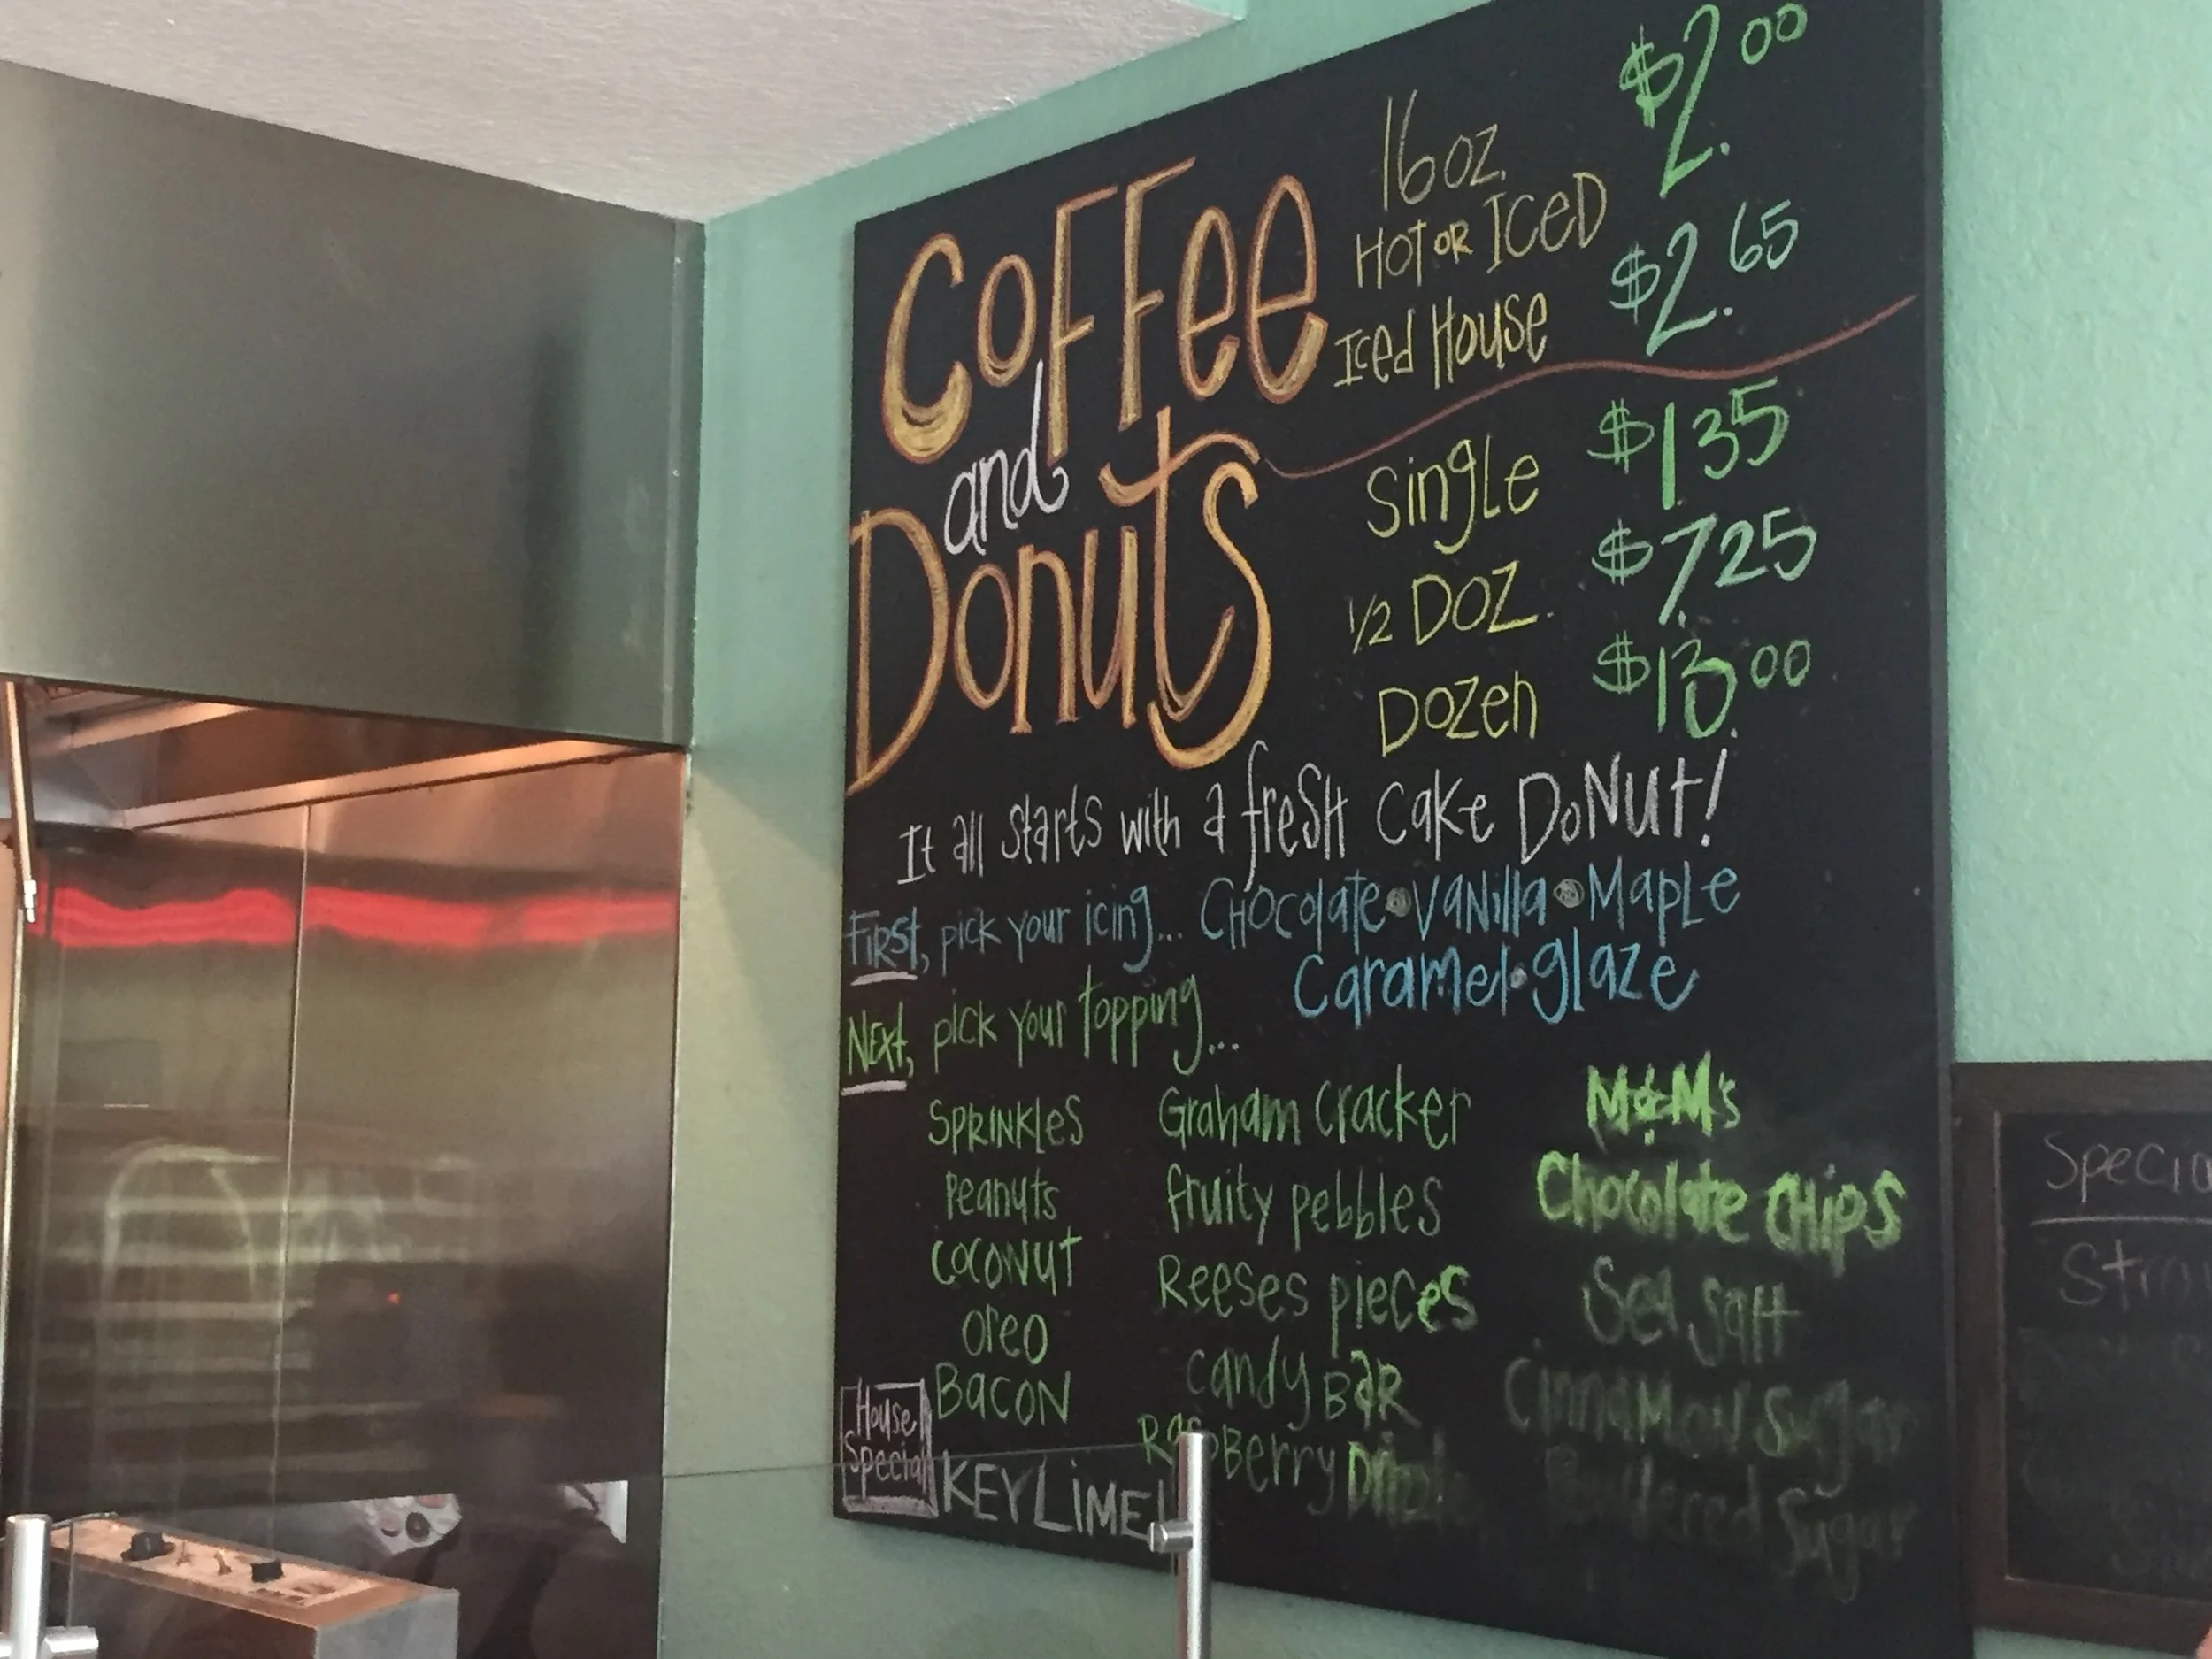 Coffee
and
Donuts
16 oz. $2.00
HOT OR ICED
Iced House $2.65
Single $1.35
1/2 DOZ. $7.25
Dozen $13.00
It all starts with a fresh cake Donut!
First, pick your icing... Chocolate • Vanilla • Maple
Caramel • glaze
Next, pick your topping...
Sprinkles Graham Cracker M&M's
Peanuts fruity pebbles Chocolate Chips
Coconut Reeses pieces Sea Salt
Oreo Candy Bar Cinnamon Sugar
Bacon Raspberry Drizzle Powdered Sugar
House
Special
KEY LIME!